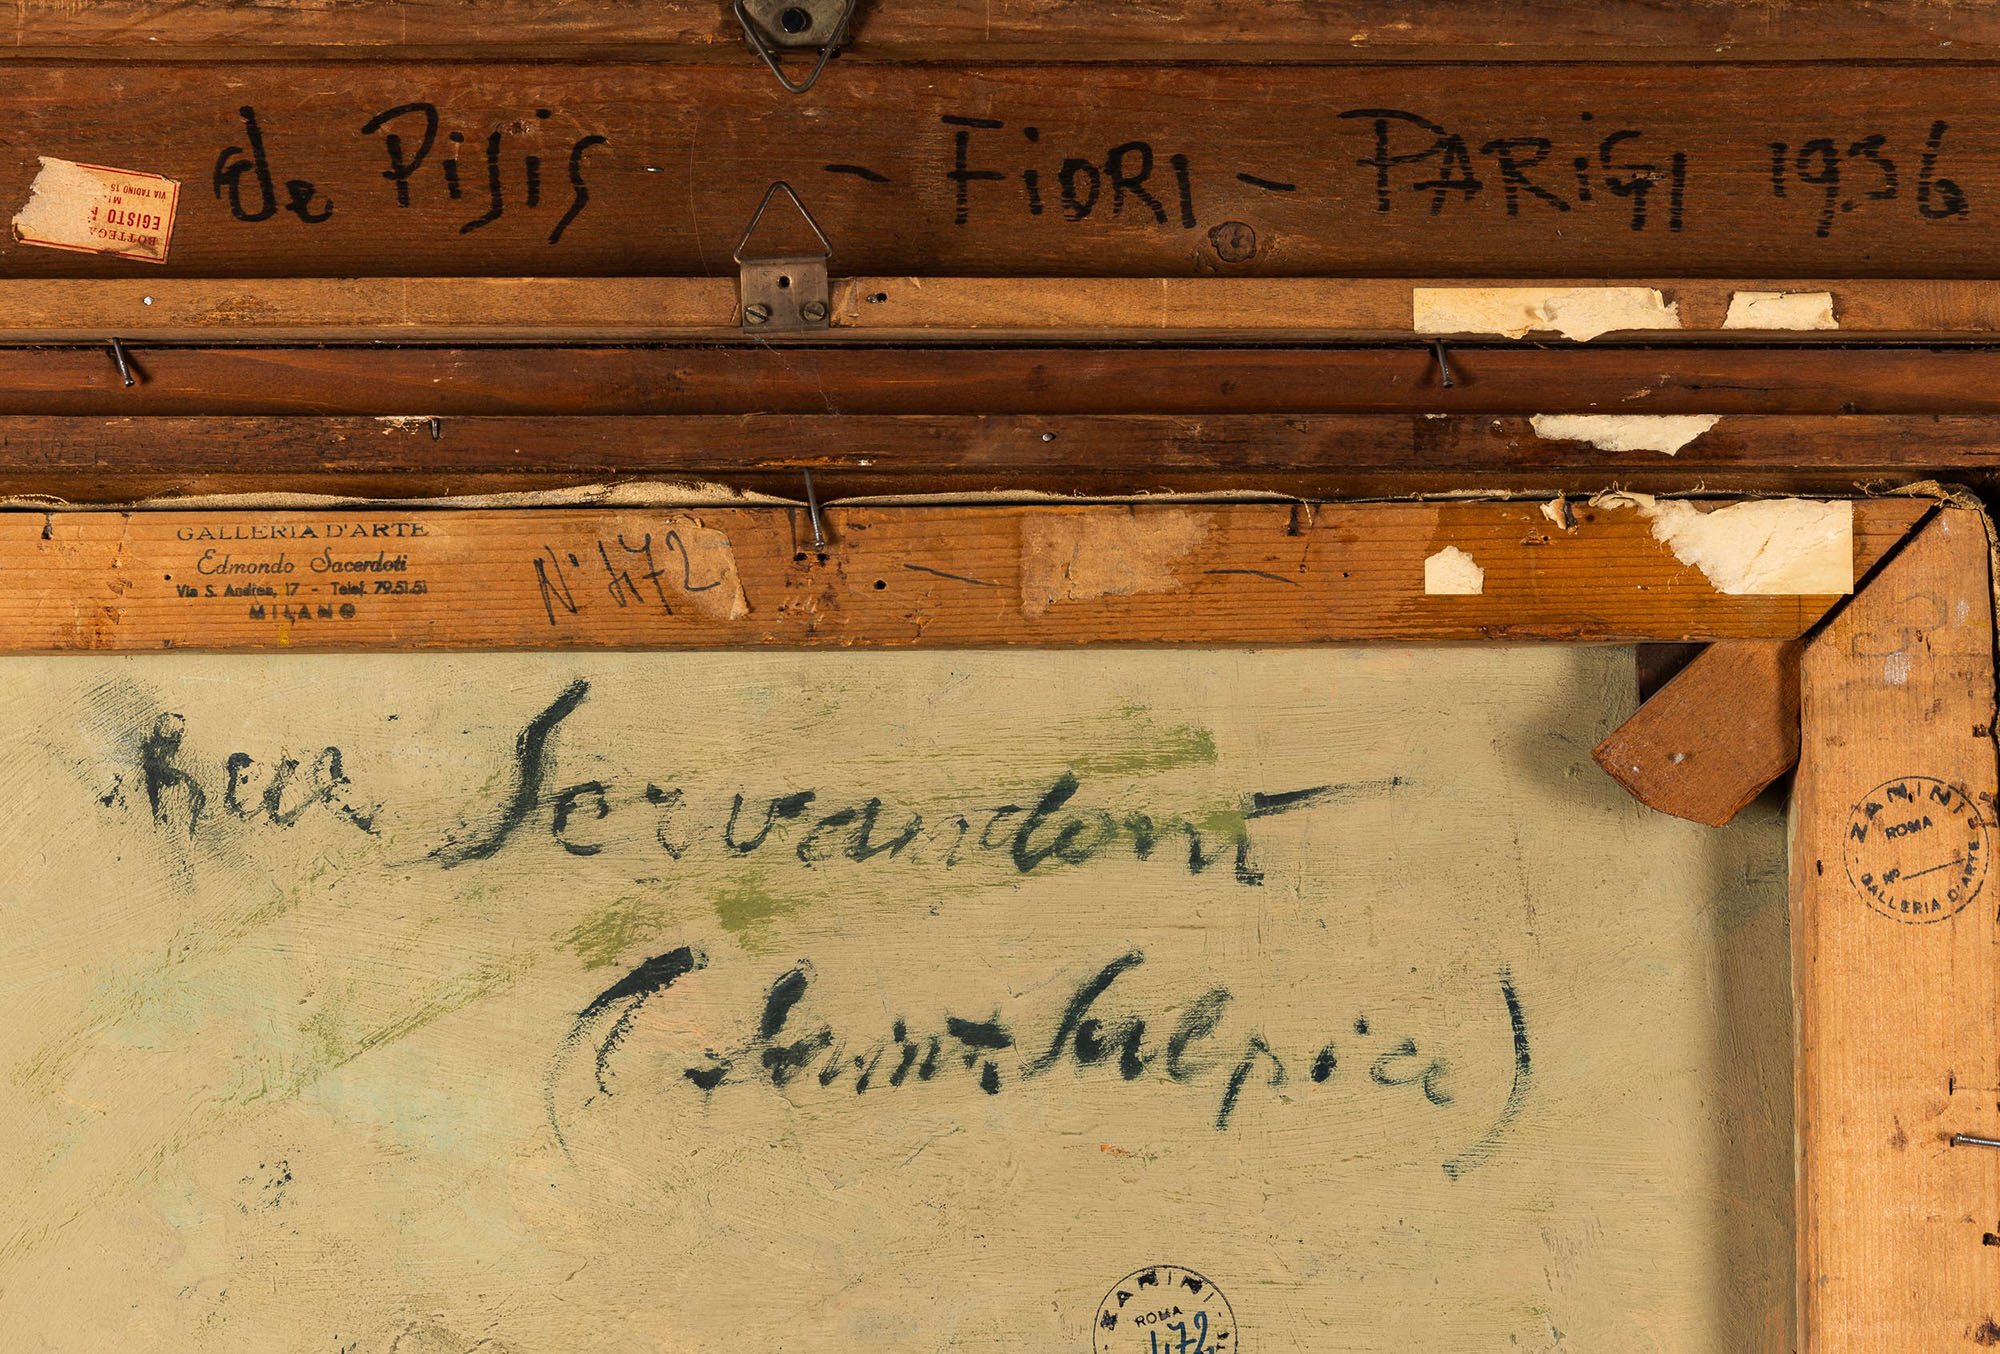 de Pisis - Fiori - PARiGi 1936
BOTTEGA
EGISTO
VIA TADINO 15
GALLERIA D'ARTE
Edmondo Sacerdoti
Via S. Andrea, 17 - Telef. 79.51.51
MILANO
N° 472
Rue Servandoni
(Saint Sulpice)
ZANINI
ROMA
No
GALLERIA D'ARTE
ZANINI
ROMA
472